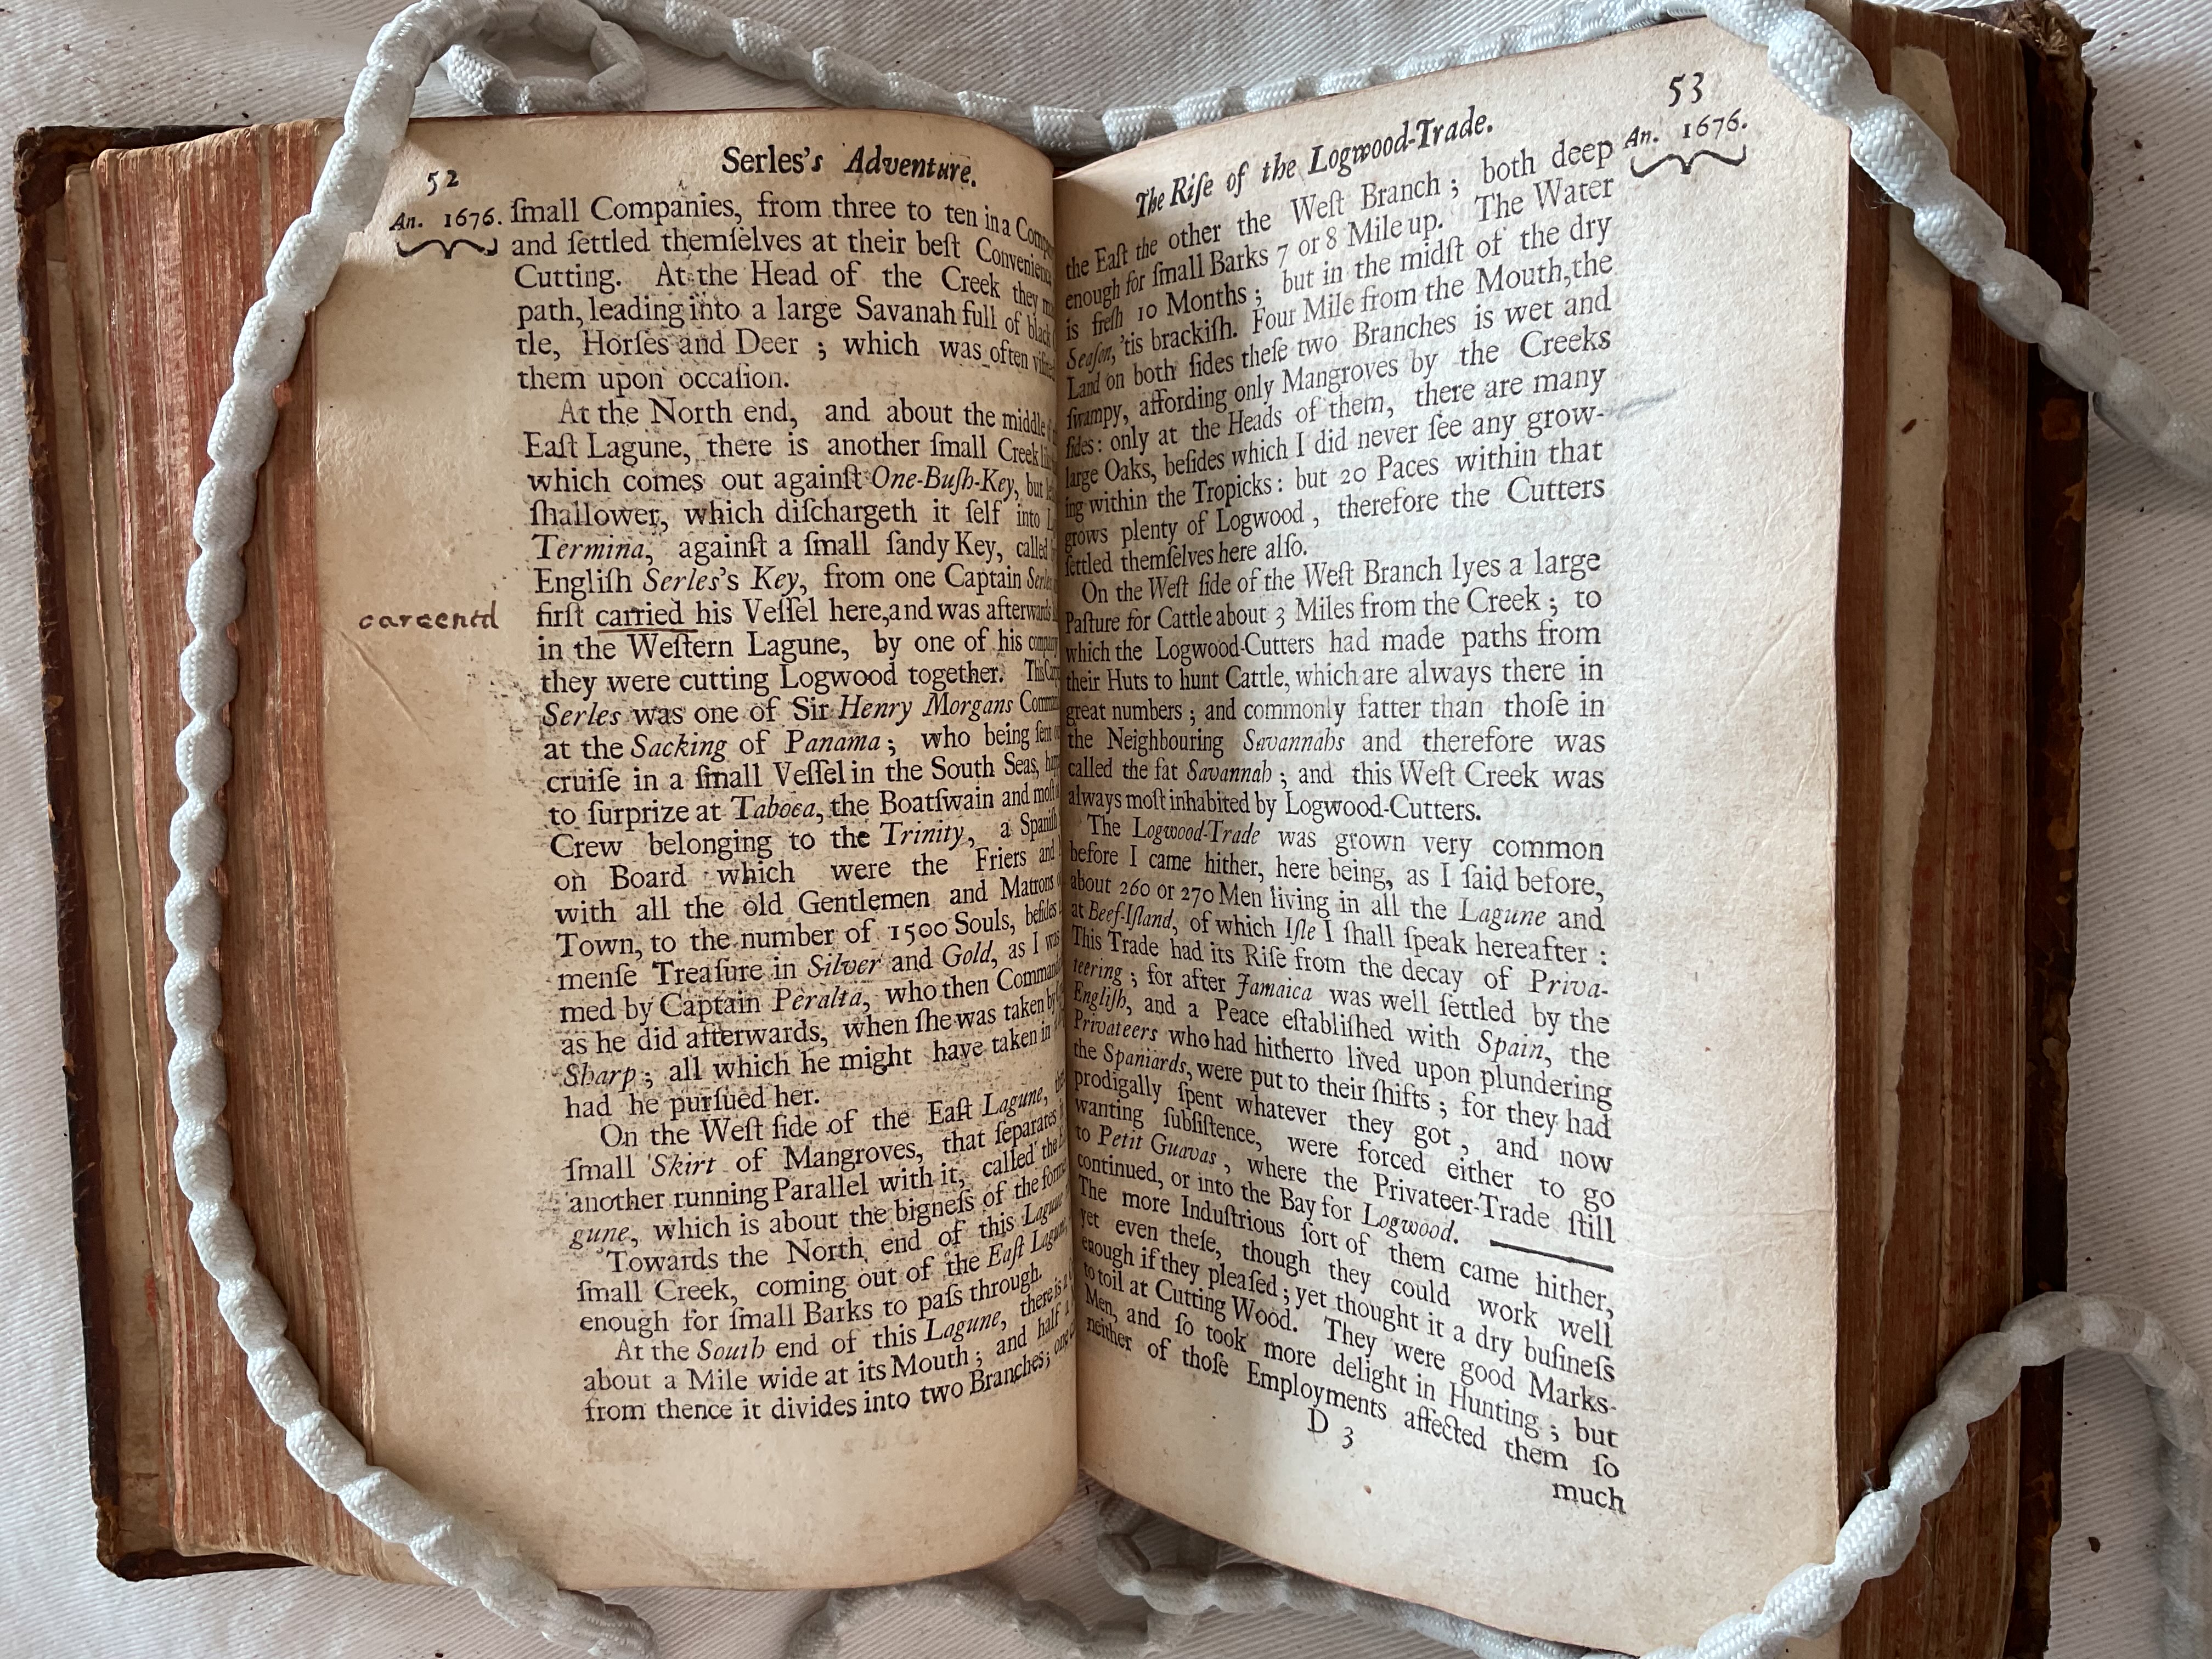 52
Serles's Adventure.
An. 1676.
ſmall Companies, from three to ten in a
and ſettled themſelves at their beſt
Cutting. At the Head of the Creek they
path, leading into a large Savanah full of black
tle, Horſes and Deer ; which was often
them upon occaſion.
At the North end, and about the middle
Eaſt Lagune, there is another ſmall Creek
which comes out againſt One-Buſh-Key, but
ſhallower, which diſchargeth it ſelf into
Termina, againſt a ſmall ſandy Key, called
Engliſh Serles's Key, from one Captain
careend
firſt carried his Veſſel here,and was afterwards
in the Weſtern Lagune, by one of his
they were cutting Logwood together. This
Serles was one of Sir Henry Morgans
at the Sacking of Panama ; who being ſent
cruiſe in a ſmall Veſſel in the South Seas,
to ſurprize at Taboca, the Boatſwain and moſt
Crew belonging to the Trinity, a
on Board which were the Friers and
with all the old Gentlemen and Matrons
Town, to the number of 1500 Souls, beſides
menſe Treaſure in Silver and Gold, as I was
med by Captain Peralta, who then
as he did afterwards, when ſhe was taken by
Sharp ; all which he might have taken in
had he purſued her.
On the Weſt ſide of the Eaſt Lagune,
ſmall Skirt of Mangroves, that ſeparates
another running Parallel with it, called the
gune, which is about the bigneſs of the
Towards the North end of this Lagune
ſmall Creek, coming out of the Eaſt
enough for ſmall Barks to paſs through.
At the South end of this Lagune, there is a
about a Mile wide at its Mouth ; and half
from thence it divides into two Branches; one
53
The Riſe of the Logwood-Trade.
An. 1676.
the Eaſt the other the Weſt Branch ; both deep
enough for ſmall Barks 7 or 8 Mile up. The Water
is freſh 10 Months ; but in the midſt of the dry
Seaſon, 'tis brackiſh. Four Mile from the Mouth,the
Land on both ſides theſe two Branches is wet and
ſwampy, affording only Mangroves by the Creeks
ſides : only at the Heads of them, there are many
large Oaks, beſides which I did never ſee any grow-
ing within the Tropicks : but 20 Paces within that
grows plenty of Logwood , therefore the Cutters
ſettled themſelves here alſo.
On the Weſt ſide of the Weſt Branch lyes a large
Paſture for Cattle about 3 Miles from the Creek ; to
which the Logwood-Cutters had made paths from
their Huts to hunt Cattle, which are always there in
great numbers ; and commonly fatter than thoſe in
the Neighbouring Savannahs and therefore was
called the fat Savannah ; and this Weſt Creek was
always moſt inhabited by Logwood-Cutters.
The Logwood-Trade was grown very common
before I came hither, here being, as I ſaid before,
about 260 or 270 Men living in all the Lagune and
at Beef-Iſland, of which Iſle I ſhall ſpeak hereafter :
This Trade had its Riſe from the decay of Priva-
teering ; for after Jamaica was well ſettled by the
Engliſh, and a Peace eſtabliſhed with Spain, the
Privateers who had hitherto lived upon plundering
the Spaniards, were put to their ſhifts ; for they had
prodigally ſpent whatever they got , and now
wanting ſubſiſtence, were forced either to go
to Petit Guavas , where the Privateer-Trade ſtill
continued, or into the Bay for Logwood.
The more Induſtrious ſort of them came hither,
yet even theſe, though they could work well
enough if they pleaſed ; yet thought it a dry buſineſs
to toil at Cutting Wood. They were good Marks-
Men, and ſo took more delight in Hunting ; but
neither of thoſe Employments affected them ſo
D 3
much